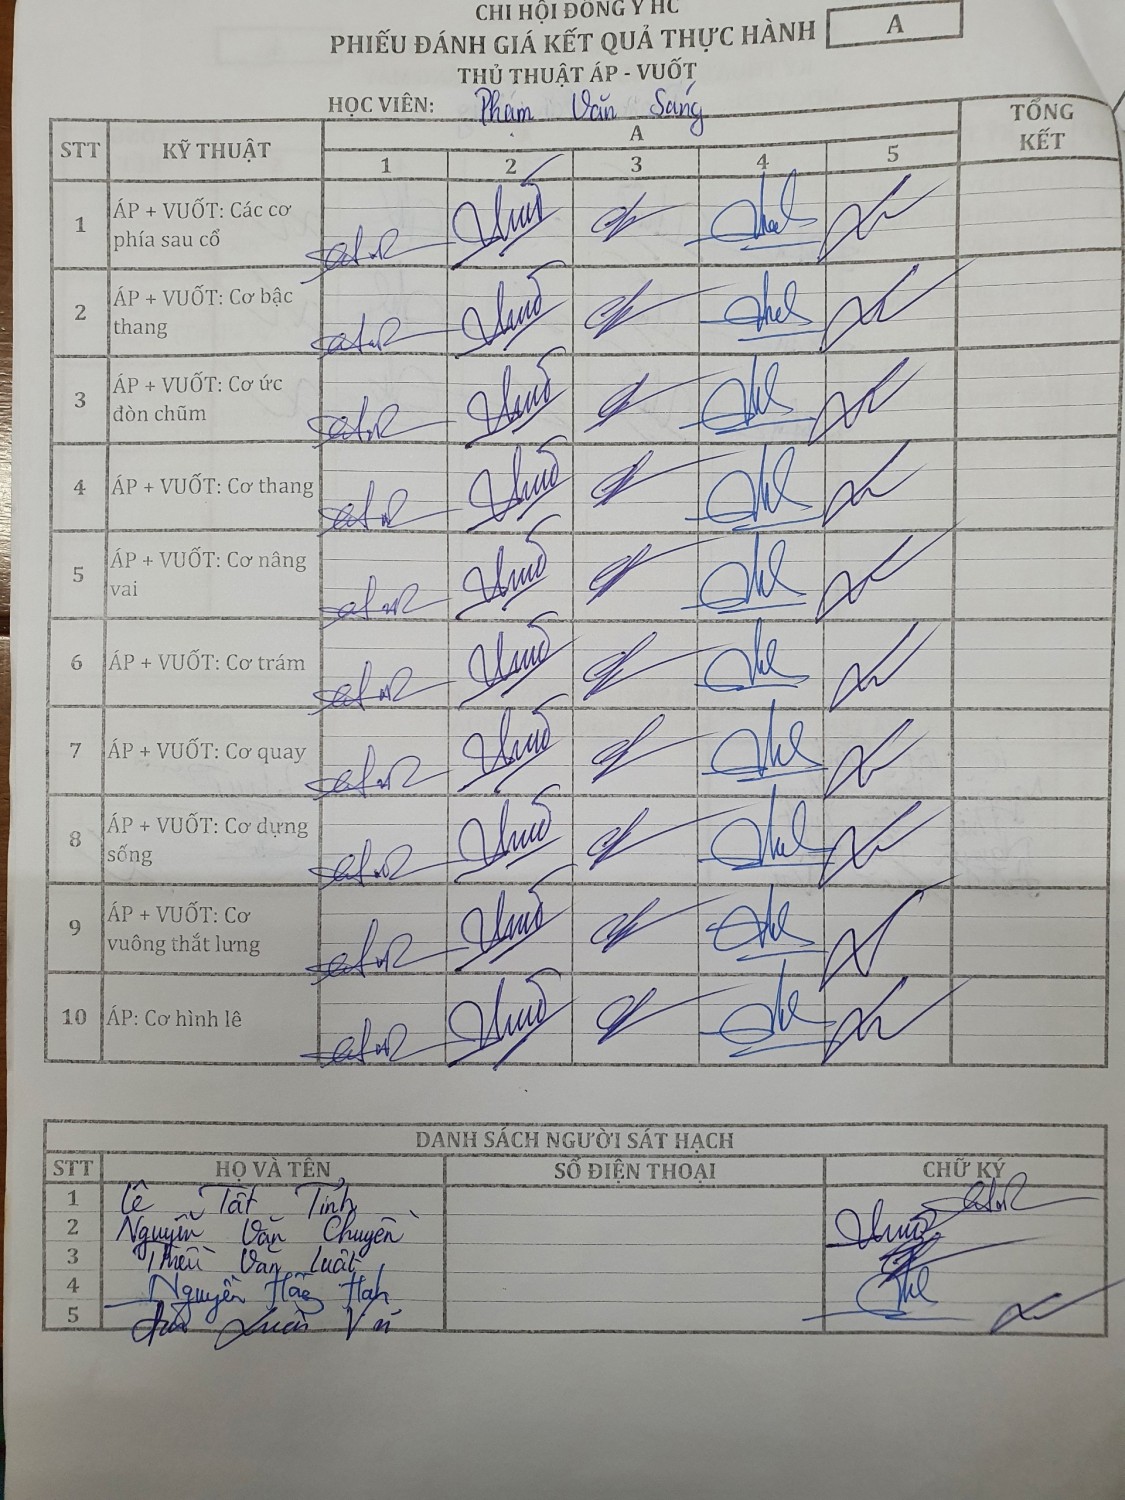 CHI HỘI ĐÔNG Y HC
PHIẾU ĐÁNH GIÁ KẾT QUẢ THỰC HÀNH A
THỦ THUẬT ÁP - VUỐT
HỌC VIÊN: Phạm Văn Sáng
STT KỸ THUẬT A TỔNG KẾT
1 2 3 4 5
1 ÁP + VUỐT: Các cơ
phía sau cổ
2 ÁP + VUỐT: Cơ bậc
thang
3 ÁP + VUỐT: Cơ ức
đòn chũm
4 ÁP + VUỐT: Cơ thang
5 ÁP + VUỐT: Cơ nâng
vai
6 ÁP + VUỐT: Cơ trám
7 ÁP + VUỐT: Cơ quay
8 ÁP + VUỐT: Cơ dựng
sống
9 ÁP + VUỐT: Cơ
vuông thắt lưng
10 ÁP: Cơ hình lê
DANH SÁCH NGƯỜI SÁT HẠCH
STT HỌ VÀ TÊN SỐ ĐIỆN THOẠI CHỮ KÝ
1 Lê Tất Tính
2 Nguyễn Văn Chuyền
3 Thiều Văn Luật
4 Nguyễn
5 Xuân